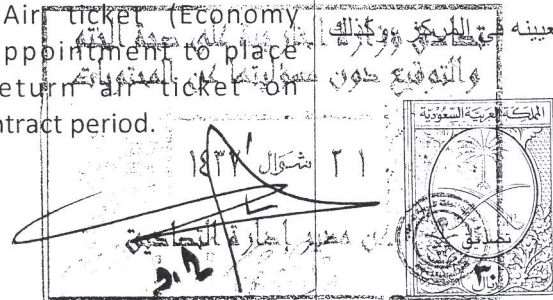 Air ticket (Economy
appointment to place
return air ticket on
ntract period.
تعيينه في المركز وكذلك
والتوقيع دون مسئوليتها عن المحتويات
٢١ شوال ١٤٣٧
عن مدير إدارة التصاديق
المملكة العربية السعودية
تصديق
٣٠
ريال